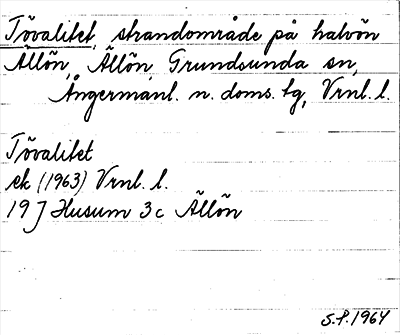 Tövalitet, strandområde på halvön
Ällön, Ällön, Grundsunda sn,
Ångermanl. n. doms. tg, Vrnl. l.
Tövalitet
ek (1963) Vrnl. l.
19 J Husum 3c Ällön
S.P. 1964